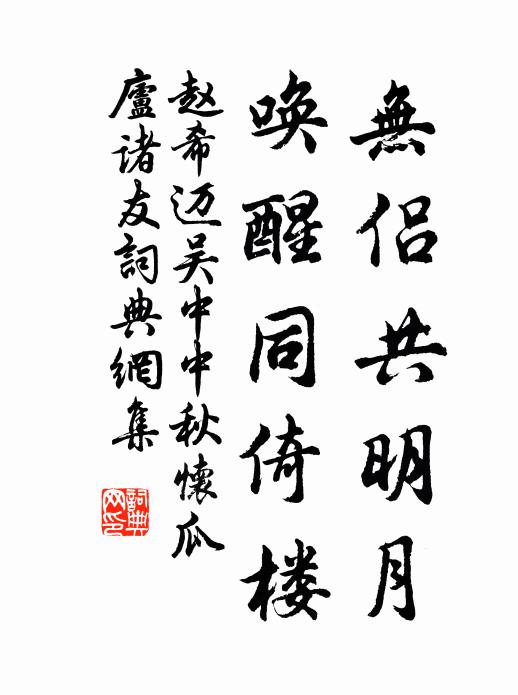 無侶共明月
唤醒同倚楼
赵希迈吴中中秋懷瓜
廬诸友詞典網集
詞典网印